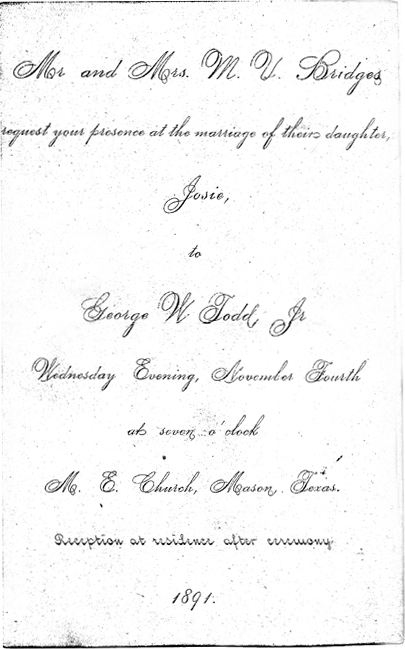 Mr and Mrs. M. V. Bridges
request your presence at the marriage of their daughter,
Josie,
to
George W Todd, Jr
Wednesday Evening, November Fourth
at seven o'clock
M. E. Church, Mason, Texas.
Reception at residence after ceremony
1891.